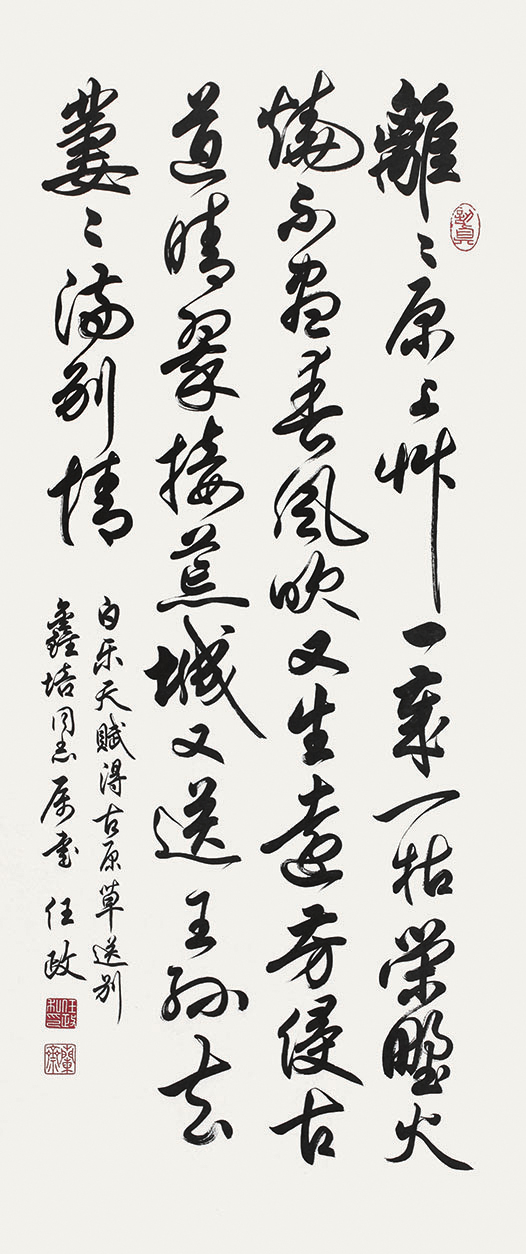 離〻原上艸一歲一枯榮野火
燒不盡春風吹又生遠芳侵古
道晴翠接荒城又送王孫去
萋〻滿别情
白乐天賦得古原草送别
鑫培同志属書 任政
任政
蘭齋